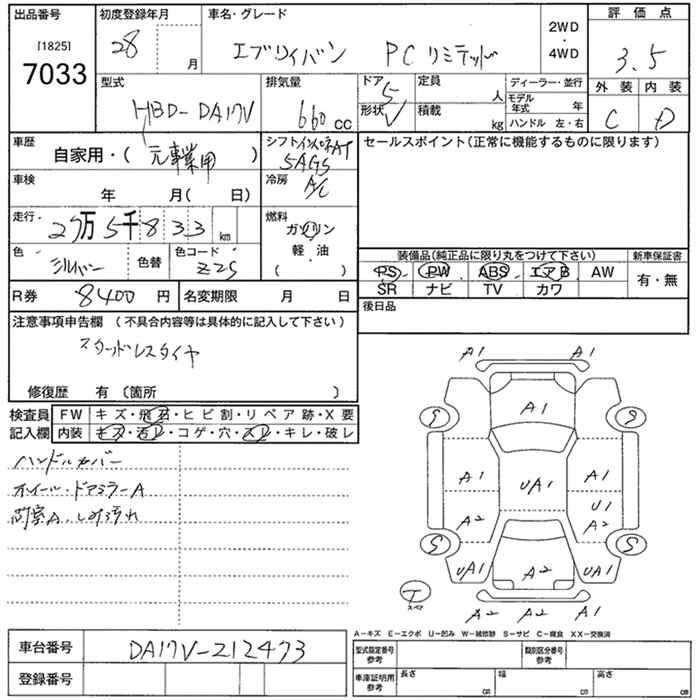 出品番号 初度登録年月 車名・グレード 評価点
[1825] 7033 28 月 エブリイバン PCリミテッド 2WD・4WD 3.5
型式 排気量 ドア 5 定員 人 ディーラー・並行 外装 内装
HBD-DA17V 660cc 形状 V 積載 kg モデル年式 年 ハンドル 左・右 C D
車歴 自家用・( 元事業用 ) シフト インパネAT 5AGS セールスポイント(正常に機能するものに限ります)
車検 年 月( 日) 冷房 A/C
走行 27万5千833km 燃料 ガソリン 軽・油 ( )
色 シルバー 色替 色コード Z2S 装備品(純正品に限り丸をつけて下さい) 新車保証書
PS PW ABS エアB AW 有・無
SR ナビ TV カワ
R券 8400円 名変期限 月 日 後日品
注意事項申告欄(不具合内容等は具体的に記入して下さい)
スタッドレスタイヤ
修復歴 有(箇所 )
検査員 FW キズ・飛石・ヒビ割・リペア跡・X要
記入欄 内装 キズ・汚レ・コゲ・穴・スレ・キレ・破レ
ハンドルカバー
ホイール・ドアミラーA
荷室A.しみ汚れ
A1 A1
A1
S S
A1 UA1 A1
U1
A2 A2
S S
UA1 A2 UA1
T スペア
A2 A2 A1
A-キズ E-エクボ U-凹み W-補修跡 S-サビ C-腐食 XX-交換済
車台番号 DA17V-212473 型式指定番号 参考 類別区分番号 参考
登録番号 車庫証明用 参考 長さ cm 幅 cm 高さ cm